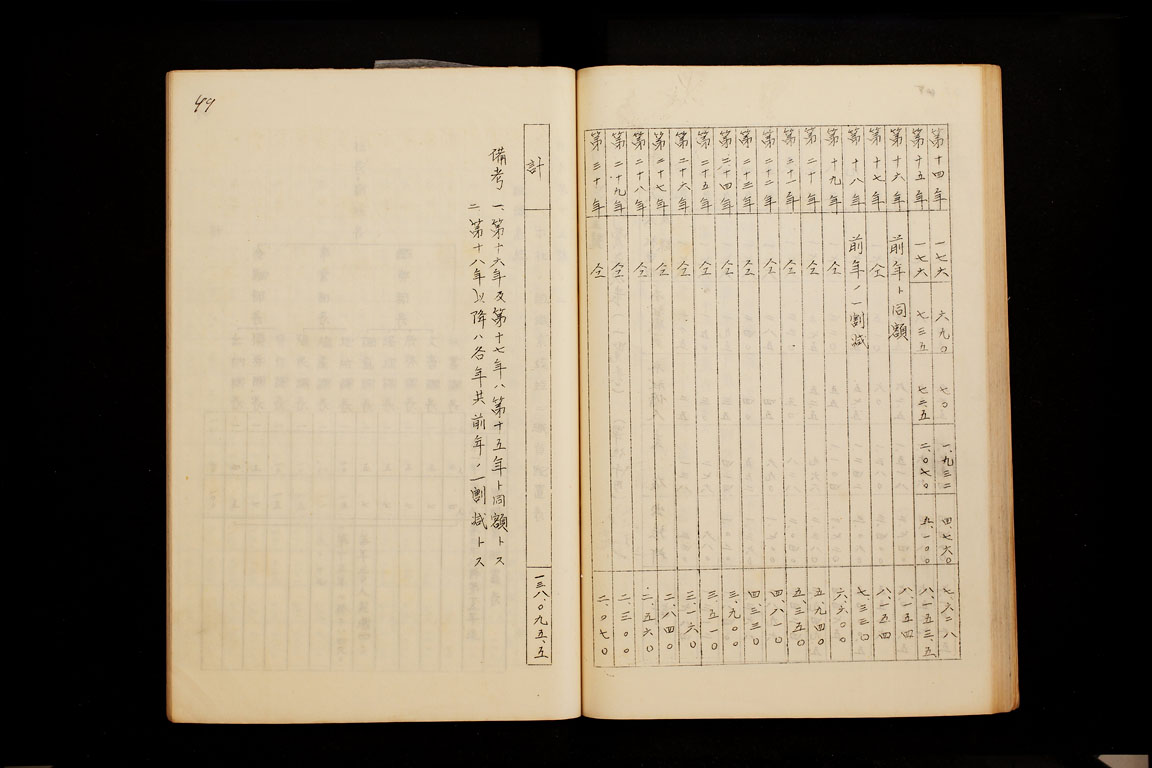 第十四年 一七六 六九〇 七〇 一、九三二 四、七六〇 七、六二八
第十五年 一七六 七三五 七二、五 二、〇七〇 五、一〇〇 八、一五三、五
第十六年 前年ト同額 八、一五四
第十七年 仝 八、一五四
第十八年 前年ノ一割減 七、三三〇
第十九年 仝 六、六〇〇
第二十年 仝 五、九四〇
第二十一年 仝 五、三五〇
第二十二年 仝 四、八一〇
第二十三年 仝 四、三三〇
第二十四年 仝 三、九〇〇
第二十五年 仝 三、五一〇
第二十六年 仝 三、一六〇
第二十七年 仝 二、八四〇
第二十八年 仝 二、五六〇
第二十九年 仝 二、三〇〇
第三十年 仝 二、〇七〇
計 一三八、〇九五、五
備考 一、第十六年及第十七年ハ第十五年ト同額トス
二、第十八年以降ハ各年共前年ノ一割減トス
49